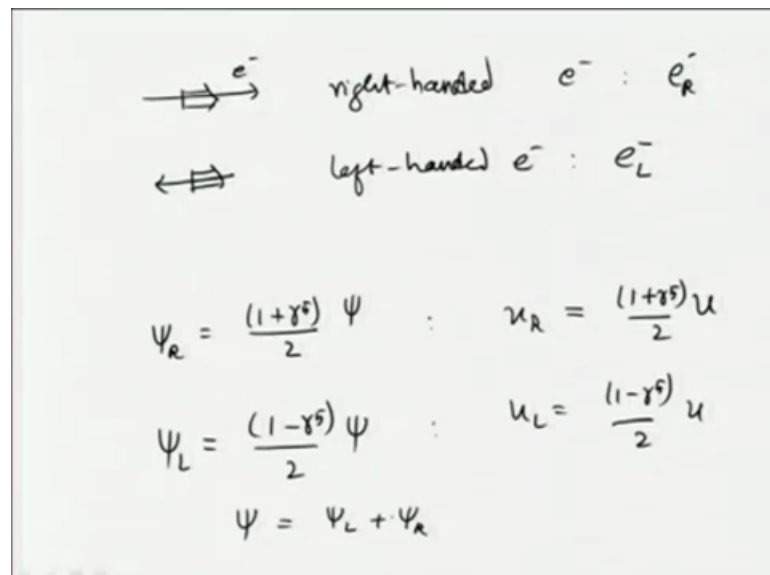 e⁻ right-handed e⁻ : e⁻_R
left-handed e⁻ : e⁻_L
ψ_R = (1+γ⁵)/2 ψ : u_R = (1+γ⁵)/2 u
ψ_L = (1-γ⁵)/2 ψ : u_L = (1-γ⁵)/2 u
ψ = ψ_L + ψ_R